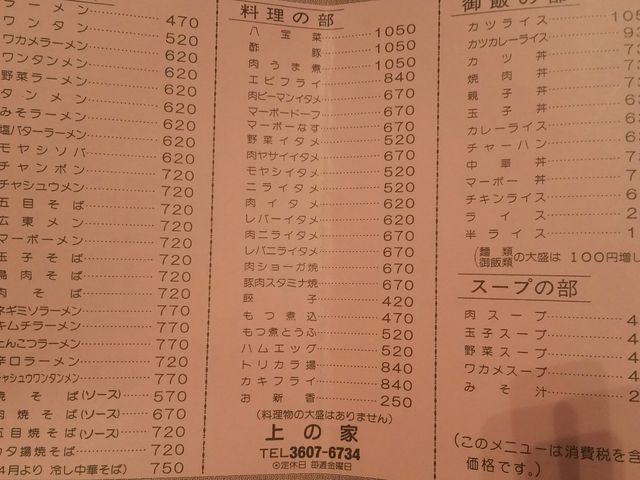 ラーメン 470
ワンタン 520
ワカメラーメン 620
ワンタンメン 620
野菜ラーメン 620
タンメン 620
みそラーメン 620
塩バターラーメン 620
モヤシソバ 620
チャンポン 720
チャシュウメン 720
五目そば 720
広東メン 720
マーボーメン 720
玉子そば 720
鳥肉そば 720
肉そば 720
ネギミソラーメン 770
キムチラーメン 770
とんこつラーメン 770
辛口ラーメン 720
チャシュウワンタンメン 770
焼そば(ソース) 570
肉焼そば(ソース) 670
五目焼そば 720
カタ揚焼そば 720
4月より 冷し中華そば) 750
料理の部
八宝菜 1050
酢豚 1050
肉うま煮 1050
エビフライ 840
肉ピーマンイタメ 670
マーボードーフ 670
マーボーなす 670
野菜イタメ 520
肉ヤサイイタメ 670
モヤシイタメ 520
ニライタメ 520
肉イタメ 620
レバーイタメ 620
肉ニライタメ 670
レバニライタメ 670
肉ショーガ焼 670
豚肉スタミナ焼 670
餃子 420
もつ煮込 470
もつ煮とうふ 520
ハムエッグ 520
トリカラ揚 840
カキフライ 840
お新香 250
(料理物の大盛はありません)
上の家
TEL3607-6734
◎定休日 毎週金曜日
御飯の部
カツライス
カツカレーライス
カツ丼
焼肉丼
親子丼
玉子丼
カレーライス
チャーハン
中華丼
マーボー丼
チキンライス
ライス
半ライス
(麺類 御飯類の大盛は 100円増し
スープの部
肉スープ
玉子スープ
野菜スープ
ワカメスープ
みそ汁
(このメニューは消費税を含
価格です。)